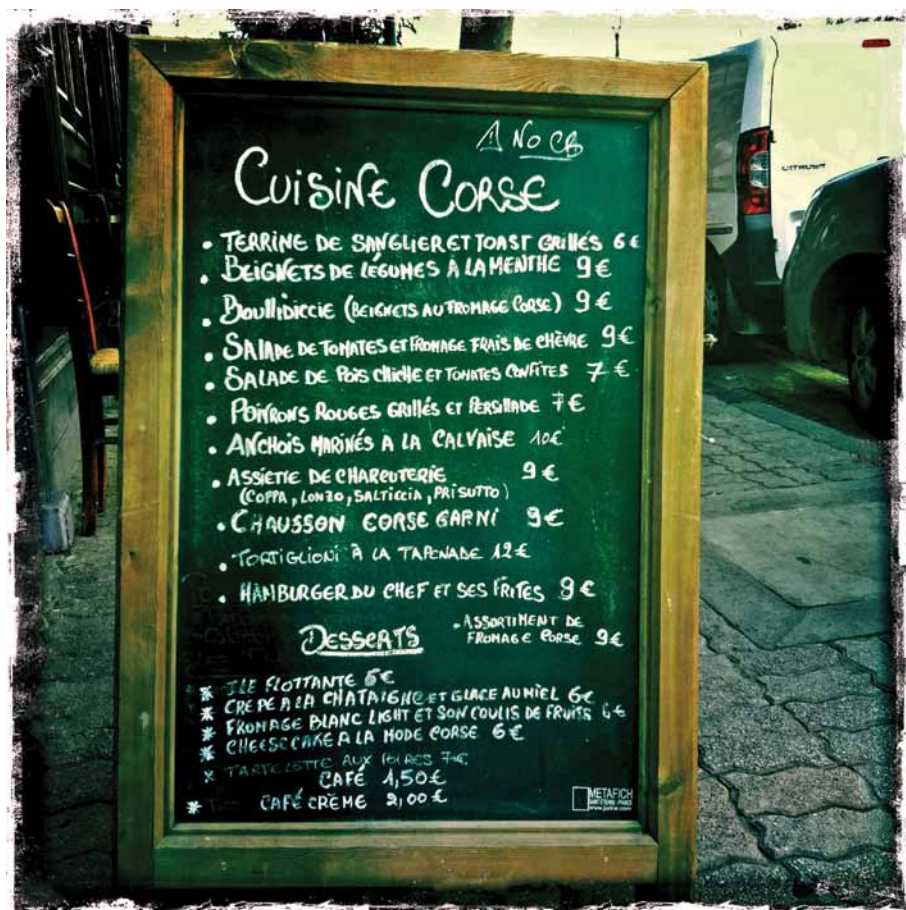 ⚠ No CB
CUISINE CORSE
• TERRINE DE SANGLIER ET TOAST GRILLÉS 6€
• BEIGNETS DE LÉGUMES À LA MENTHE 9€
• BOULLIDICCIE (BEIGNETS AU FROMAGE CORSE) 9€
• SALADE DE TOMATES ET FROMAGE FRAIS DE CHÈVRE 9€
• SALADE DE POIS CHICHE ET TOMATES CONFITES 7€
• POIVRONS ROUGES GRILLÉS ET PERSILLADE 7€
• ANCHOIS MARINÉS A LA CALVAISE 10€
• ASSIETTE DE CHARCUTERIE 9€
(COPPA, LONZO, SALTICCIA, PRISUTTO)
• CHAUSSON CORSE GARNI 9€
• TORTIGLIONI À LA TAPENADE 12€
• HAMBURGER DU CHEF ET SES FRITES 9€
• ASSORTIMENT DE
FROMAGE CORSE 9€
DESSERTS
* ILE FLOTTANTE 6€
* CRÊPE A LA CHATAIGNE ET GLACE AU MIEL 6€
* FROMAGE BLANC LIGHT ET SON COULIS DE FRUITS 6€
* CHEESECAKE A LA MODE CORSE 6€
* TARTELETTE AUX POIRES 7€
CAFÉ 1,50€
* CAFÉ CRÈME 2,00€
METAFICH
CITROËN